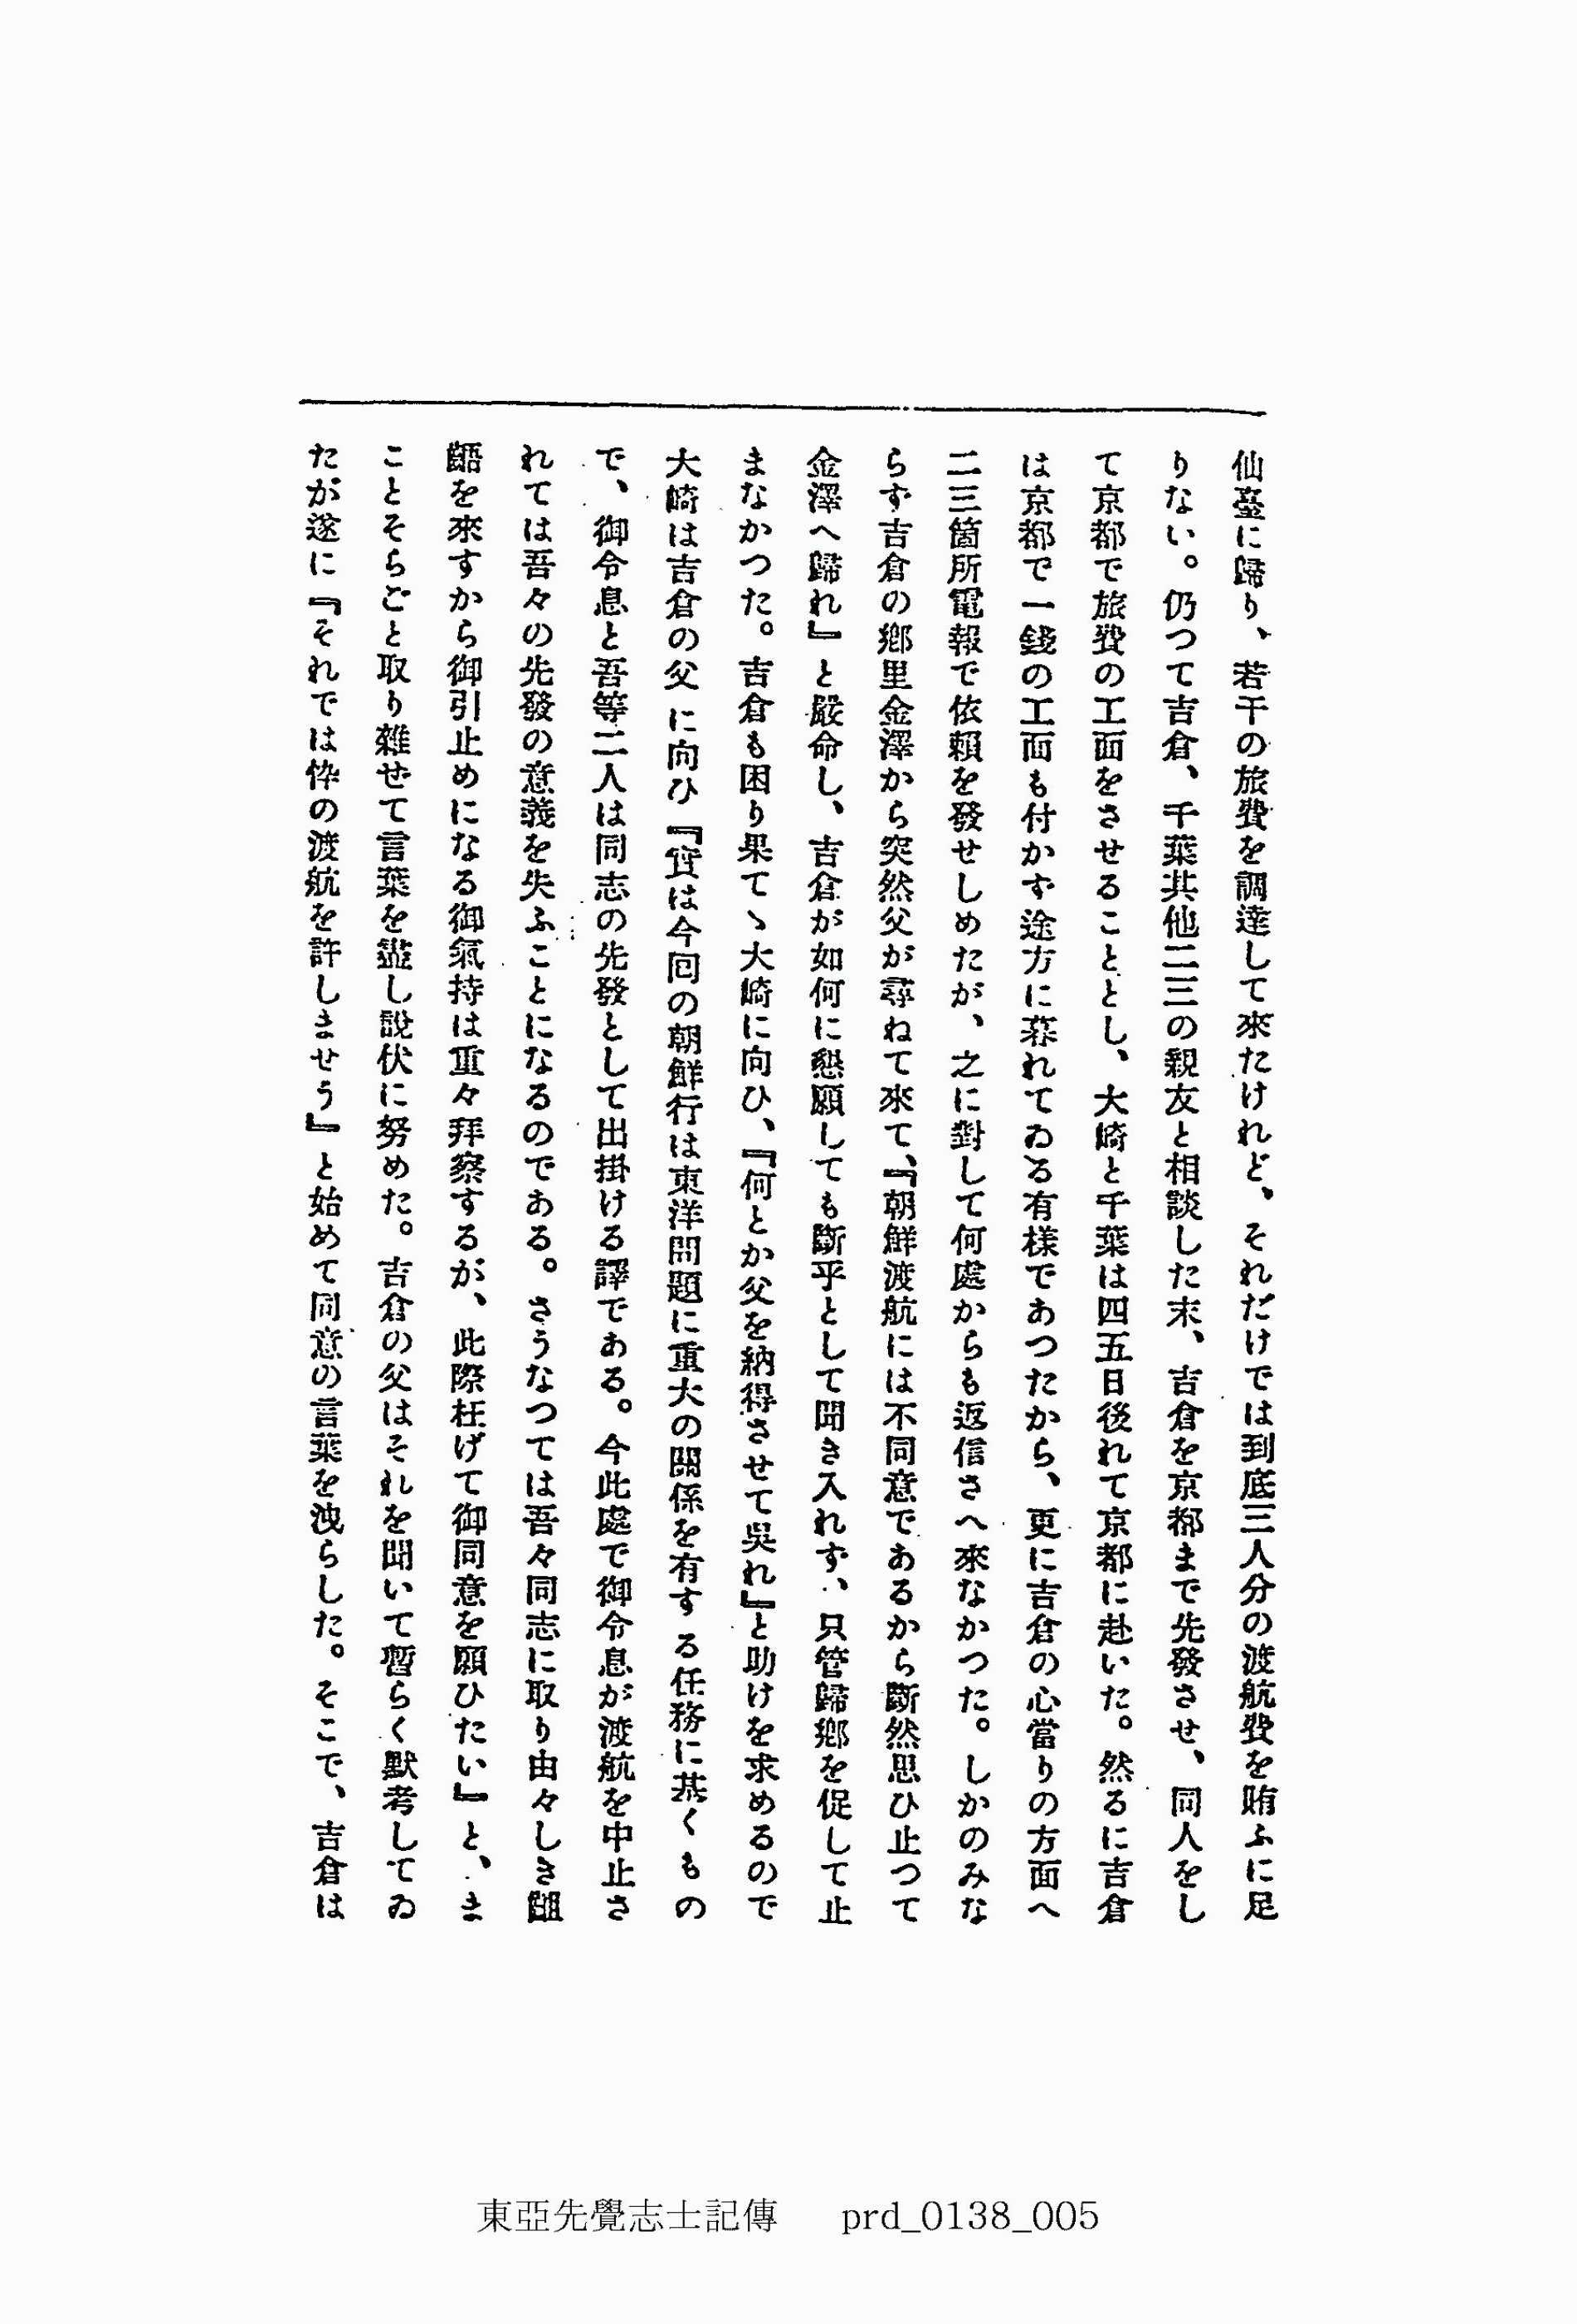 仙臺に歸り、若干の旅費を調達して來たけれど、それだけでは到底三人分の渡航費を賄ふに足
りない。仍つて吉倉、千葉其他二三の親友と相談した末、吉倉を京都まで先發させ、同人をし
て京都で旅費の工面をさせることとし、大崎と千葉は四五日後れて京都に赴いた。然るに吉倉
は京都で一錢の工面も付かず途方に暮れてゐる有様であつたから、更に吉倉の心當りの方面へ
二三箇所電報で依頼を發せしめたが、之に對して何處からも返信さへ來なかつた。しかのみな
らず吉倉の鄕里金澤から突然父が尋ねて來て、『朝鮮渡航には不同意であるから斷然思ひ止つて
金澤へ歸れ』と嚴命し、吉倉が如何に懇願しても斷乎として聞き入れず、只管歸鄕を促して止
まなかつた。吉倉も困り果てゝ大崎に向ひ、『何とか父を納得させて吳れ』と助けを求めるので
大崎は吉倉の父に向ひ『實は今回の朝鮮行は東洋問題に重大の關係を有する任務に基くもの
で、御令息と吾等二人は同志の先發として出掛ける譯である。今此處で御令息が渡航を中止さ
れては吾々の先發の意義を失ふことになるのである。さうなつては吾々同志に取り由々しき齟
齬を來すから御引止めになる御氣持は重々拜察するが、此際枉げて御同意を願ひたい』と、ま
ことそらごと取り雜ぜて言葉を盡し說伏に努めた。吉倉の父はそれを聞いて暫らく默考してゐ
たが遂に『それでは悴の渡航を許しませう』と始めて同意の言葉を洩らした。そこで、吉倉は
東亞先覺志士記傳 prd_0138_005